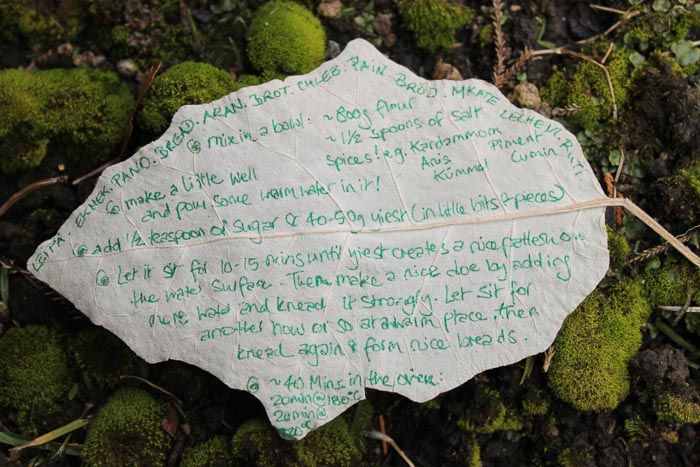 LEIPÄ. EKMEK. PANO. BREAD. ARAN. BROT. CHLEB. PAIN. BRÖD. MKATE. LECHEVI. ROTI
mix in a bowl: ~ 800g flour
~ 1½ spoons of salt
spices! e.g. Kardammom Piment
Anis Cumin
Kümmel
make a little well
and pour some warm water in it!
add ½ teaspoon of sugar & 40-50g yiest (in little bits & pieces)
Let it sit for 10-15 mins until yiest creates a nice pattesh on
the water surface. Then make a nice doe by adding
more water and knead it strongly. Let sit for
another hour or so at a warm place. then
knead again & form nice breads.
~ 40 Mins in the oven:
20min@180°C
20min@